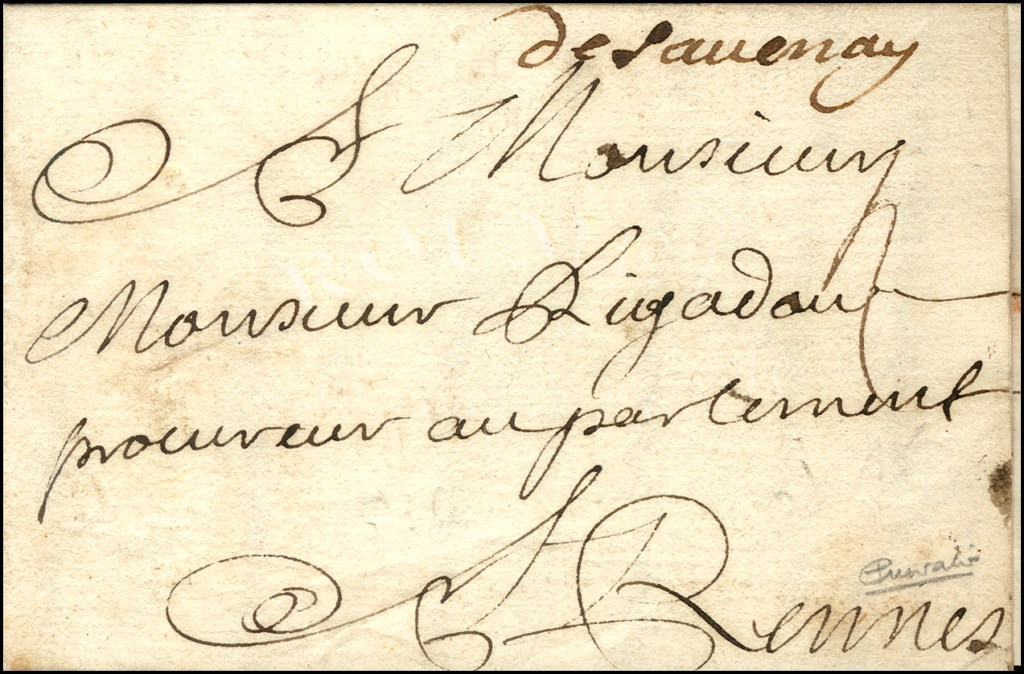 de Sauenay
A Monsieur
Monsieur Rigadou
procureur au parlement
A Rennes